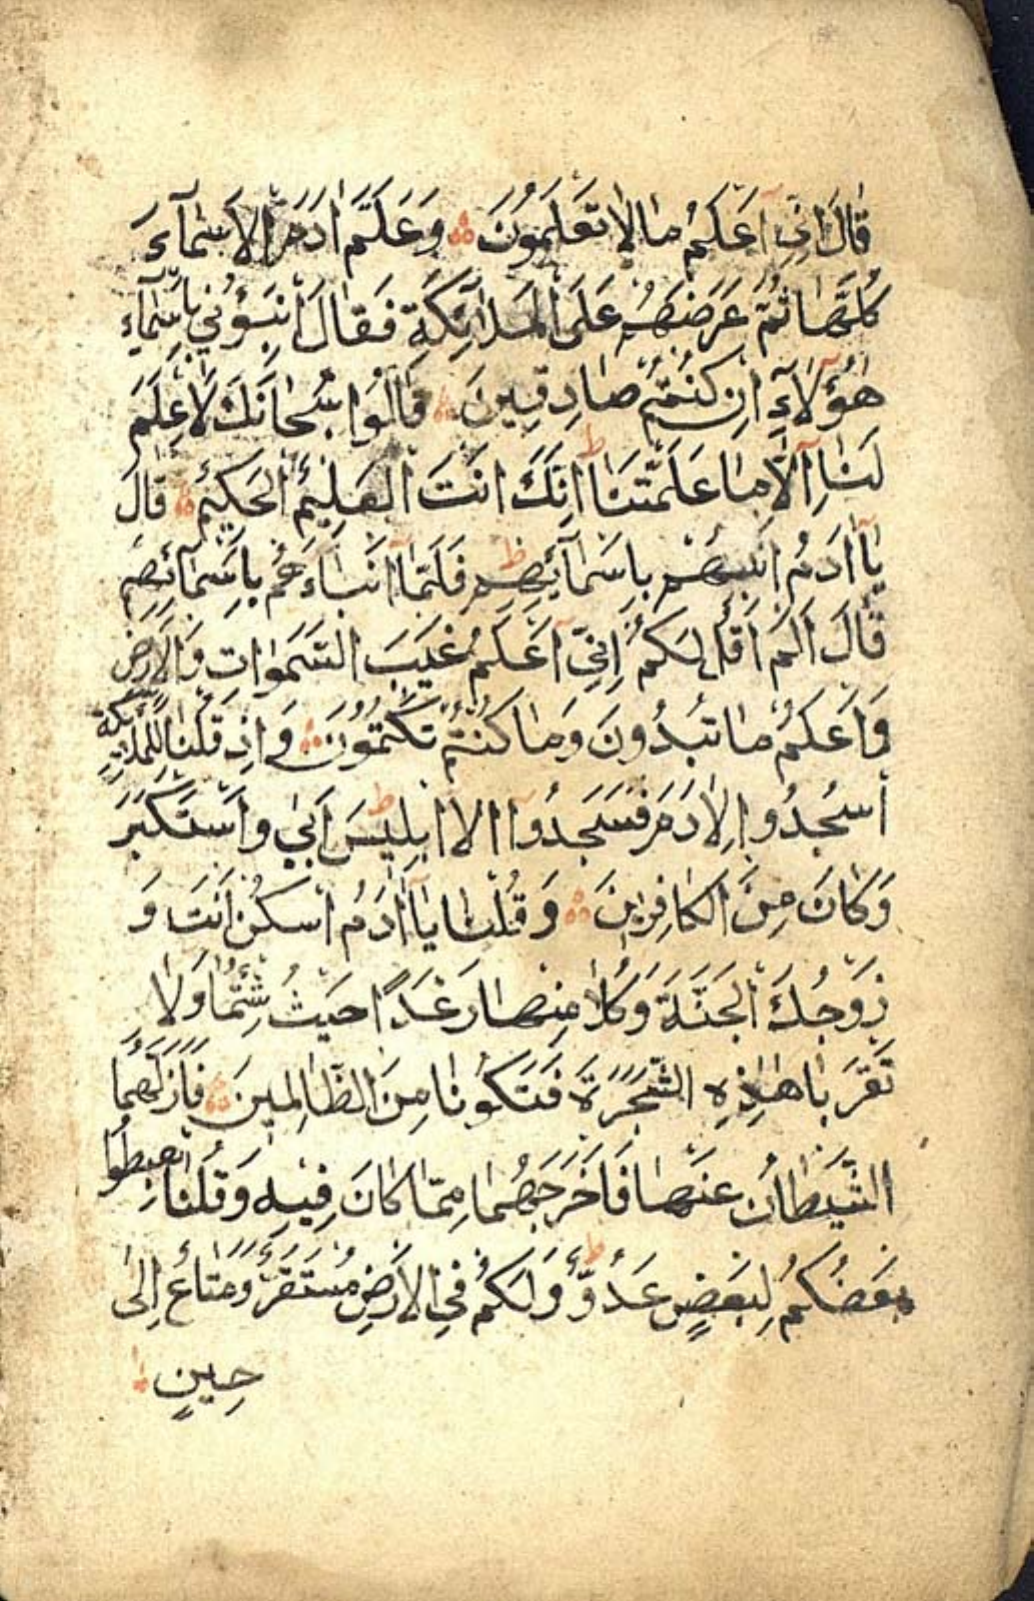 قَالَ اِنِّي اَعْلَمُ مَا لَا تَعْلَمُونَ وَعَلَّمَ اٰدَمَ الْاَسْمَآءَ
كُلَّهَا ثُمَّ عَرَضَهُمْ عَلَى الْمَلَائِكَةِ فَقَالَ اَنْبِؤُنِي بِاَسْمَآءِ
هٰؤُلَآءِ اِنْ كُنْتُمْ صَادِقِينَ قَالُوا سُبْحَانَكَ لَا عِلْمَ
لَنَا اِلَّا مَا عَلَّمْتَنَا اِنَّكَ اَنْتَ الْعَلِيمُ الْحَكِيمُ قَالَ
يَا اٰدَمُ اَنْبِئْهُمْ بِاَسْمَآئِهِمْ فَلَمَّا اَنْبَاَهُمْ بِاَسْمَآئِهِمْ
قَالَ اَلَمْ اَقُلْ لَكُمْ اِنِّي اَعْلَمُ غَيْبَ السَّمٰوَاتِ وَالْاَرْضِ
وَاَعْلَمُ مَا تُبْدُونَ وَمَا كُنْتُمْ تَكْتُمُونَ وَاِذْ قُلْنَا لِلْمَلٰئِكَةِ
اسْجُدُوا لِاٰدَمَ فَسَجَدُوا اِلَّا اِبْلِيسَ اَبٰى وَاسْتَكْبَرَ
وَكَانَ مِنَ الْكَافِرِينَ وَقُلْنَا يَا اٰدَمُ اسْكُنْ اَنْتَ وَ
زَوْجُكَ الْجَنَّةَ وَكُلَا مِنْهَا رَغَدًا حَيْثُ شِئْتُمَا وَلَا
تَقْرَبَا هٰذِهِ الشَّجَرَةَ فَتَكُونَا مِنَ الظَّالِمِينَ فَاَزَلَّهُمَا
الشَّيْطَانُ عَنْهَا فَاَخْرَجَهُمَا مِمَّا كَانَ فِيهِ وَقُلْنَا اهْبِطُوا
بَعْضُكُمْ لِبَعْضٍ عَدُوٌّ وَلَكُمْ فِي الْاَرْضِ مُسْتَقَرٌّ وَمَتَاعٌ اِلٰى
حِينٍ